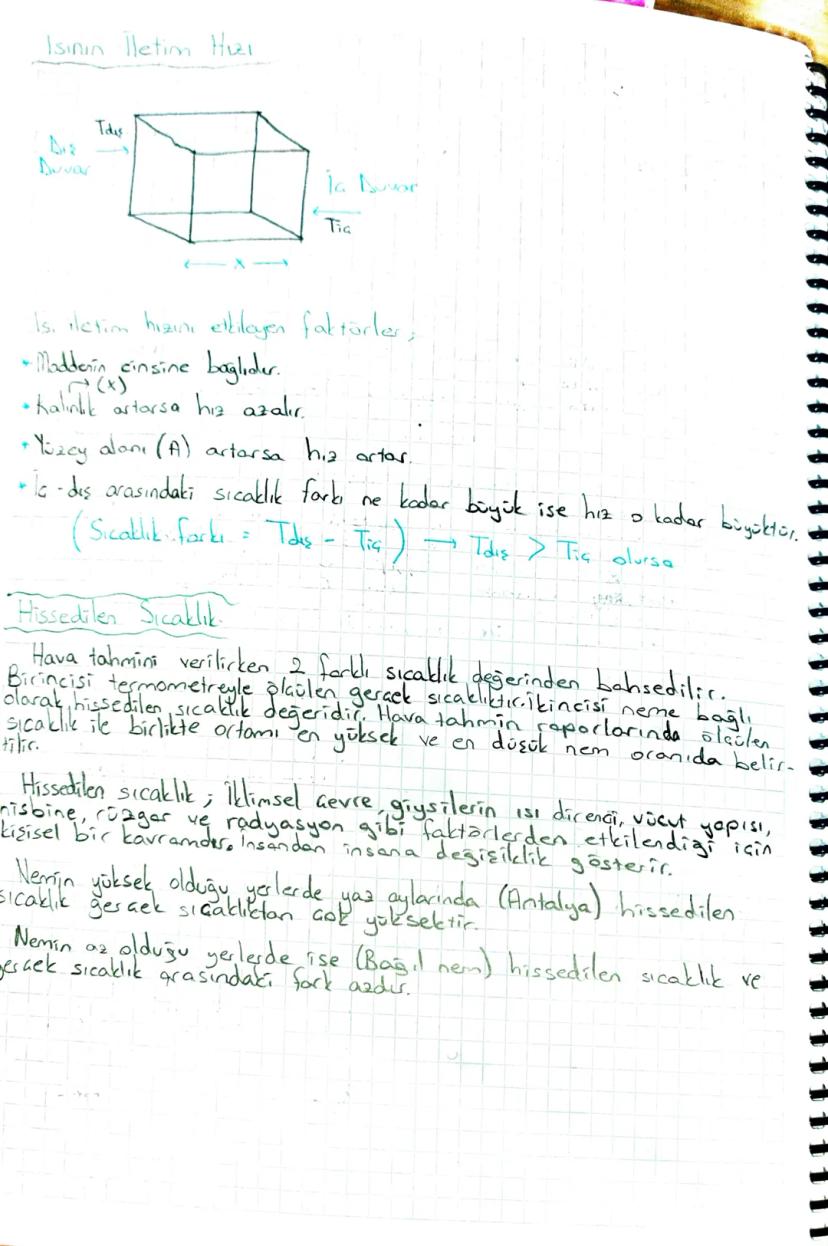 Isının İletim Hızı
Tdış
Dış
Duvar
İç Duvar
Tiç
x
Isı iletim hızını etkileyen faktörler;
• Maddenin cinsine bağlıdır.
→ (x)
• Kalınlık artarsa hız azalır.
• Yüzey alanı (A) artarsa hız artar.
• İç - dış arasındaki sıcaklık farkı ne kadar büyük ise hız o kadar büyüktür.
(Sıcaklık farkı = Tdış - Tiç) → Tdış > Tiç olursa
Hissedilen Sıcaklık
Hava tahmini verilirken 2 farklı sıcaklık değerinden bahsedilir.
Birincisi termometreyle ölçülen gerçek sıcaklıktır. İkincisi neme bağlı
olarak hissedilen sıcaklık değeridir. Hava tahmin raporlarında ölçülen
sıcaklık ile birlikte ortamı en yüksek ve en düşük nem oranıda belir-
tilir.
Hissedilen sıcaklık; İklimsel çevre, giysilerin ısı direnci, vücut yapısı,
nisbine, rüzgar ve radyasyon gibi faktörlerden etkilendiği için
kişisel bir kavramdır. İnsandan insana değişiklik gösterir.
Nemin yüksek olduğu yerlerde yaz aylarında (Antalya) hissedilen
sıcaklık gerçek sıcaklıktan çok yüksektir.
Nemin az olduğu yerlerde ise (Bağıl nem) hissedilen sıcaklık ve
gerçek sıcaklık arasındaki fark azdır.